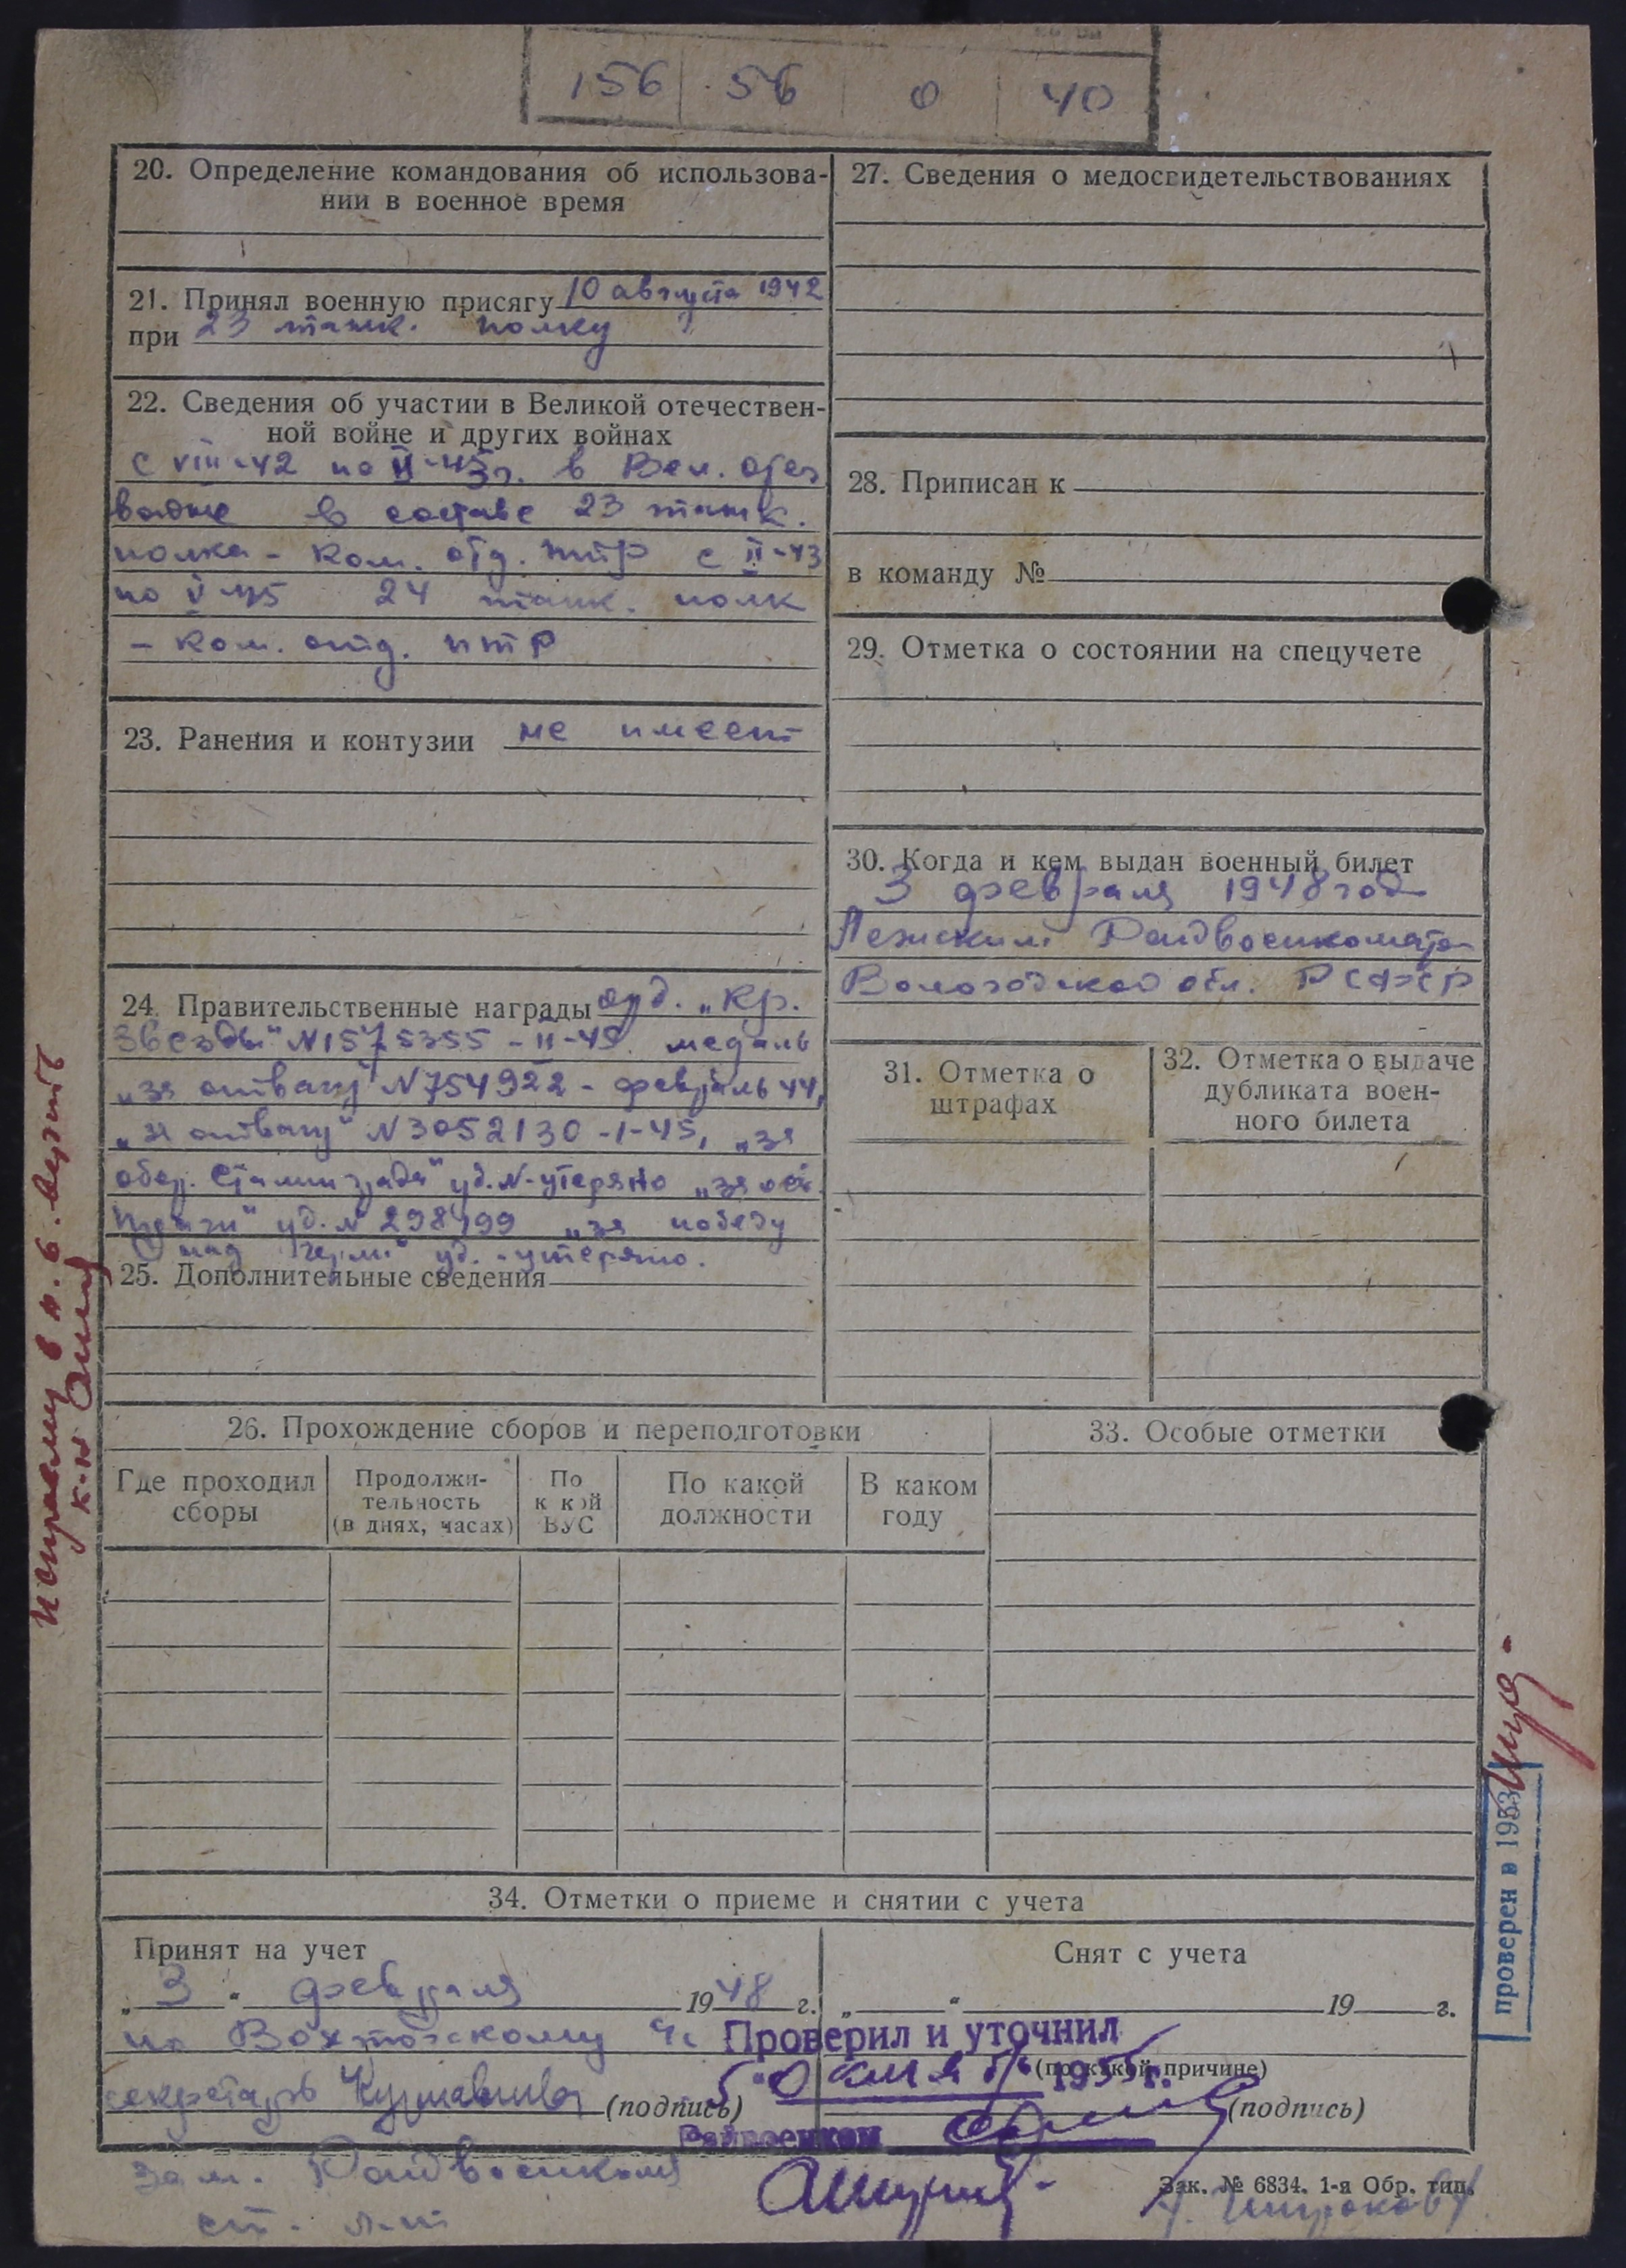 156 56 0 40
20. Определение командования об использова-
нии в военное время
21. Принял военную присягу 10 августа 1942
при 23 танк. полку
22. Сведения об участии в Великой отечествен-
ной войне и других войнах
с VIII-42 по II-43г. в Вел. отеч
войне в составе 23 танк.
полка - ком. отд. птр с II-43
по V-45 24 танк. полк
- ком. отд. птр
23. Ранения и контузии не имеет
24. Правительственные награды орд. „Кр.
Звезды" N1575355 - II-45 медаль
„за отвагу" N754922 - февраль 44,
„за отвагу" N3052130 -1-45, „за
обор. Сталинграда" уд. N-утеряно „за осв.
Праги" уд. N 298499 „за победу
над герм." уд. - утеряно.
25. Дополнительные сведения
26. Прохождение сборов и переподготовки
Где проходил сборы
Продолжи-
тельность
(в днях, часах)
По
к кой
ВУС
По какой
должности
В каком
году
27. Сведения о медосвидетельствованиях
28. Приписан к
в команду №
29. Отметка о состоянии на спецучете
30. Когда и кем выдан военный билет
3 февраля 1948 год
Лежским Райвоенкоматом
Вологодской обл. РСФСР
31. Отметка о
штрафах
32. Отметка о выдаче
дубликата воен-
ного билета
33. Особые отметки
34. Отметки о приеме и снятии с учета
Принят на учет
„ 3 " февраля 1948 г.
по Вохтожскому
секретарь (подпись)
Снят с учета
„ " 19 г.
(по какой причине)
(подпись)
Проверил и уточнил
5 "октября 1955 г.
Райвоенком
зам. Райвоенкома
ст. л-т
Зак. № 6834. 1-я Обр. тип.
исправлму в п. 6. верить
к-н
проверен в 1953